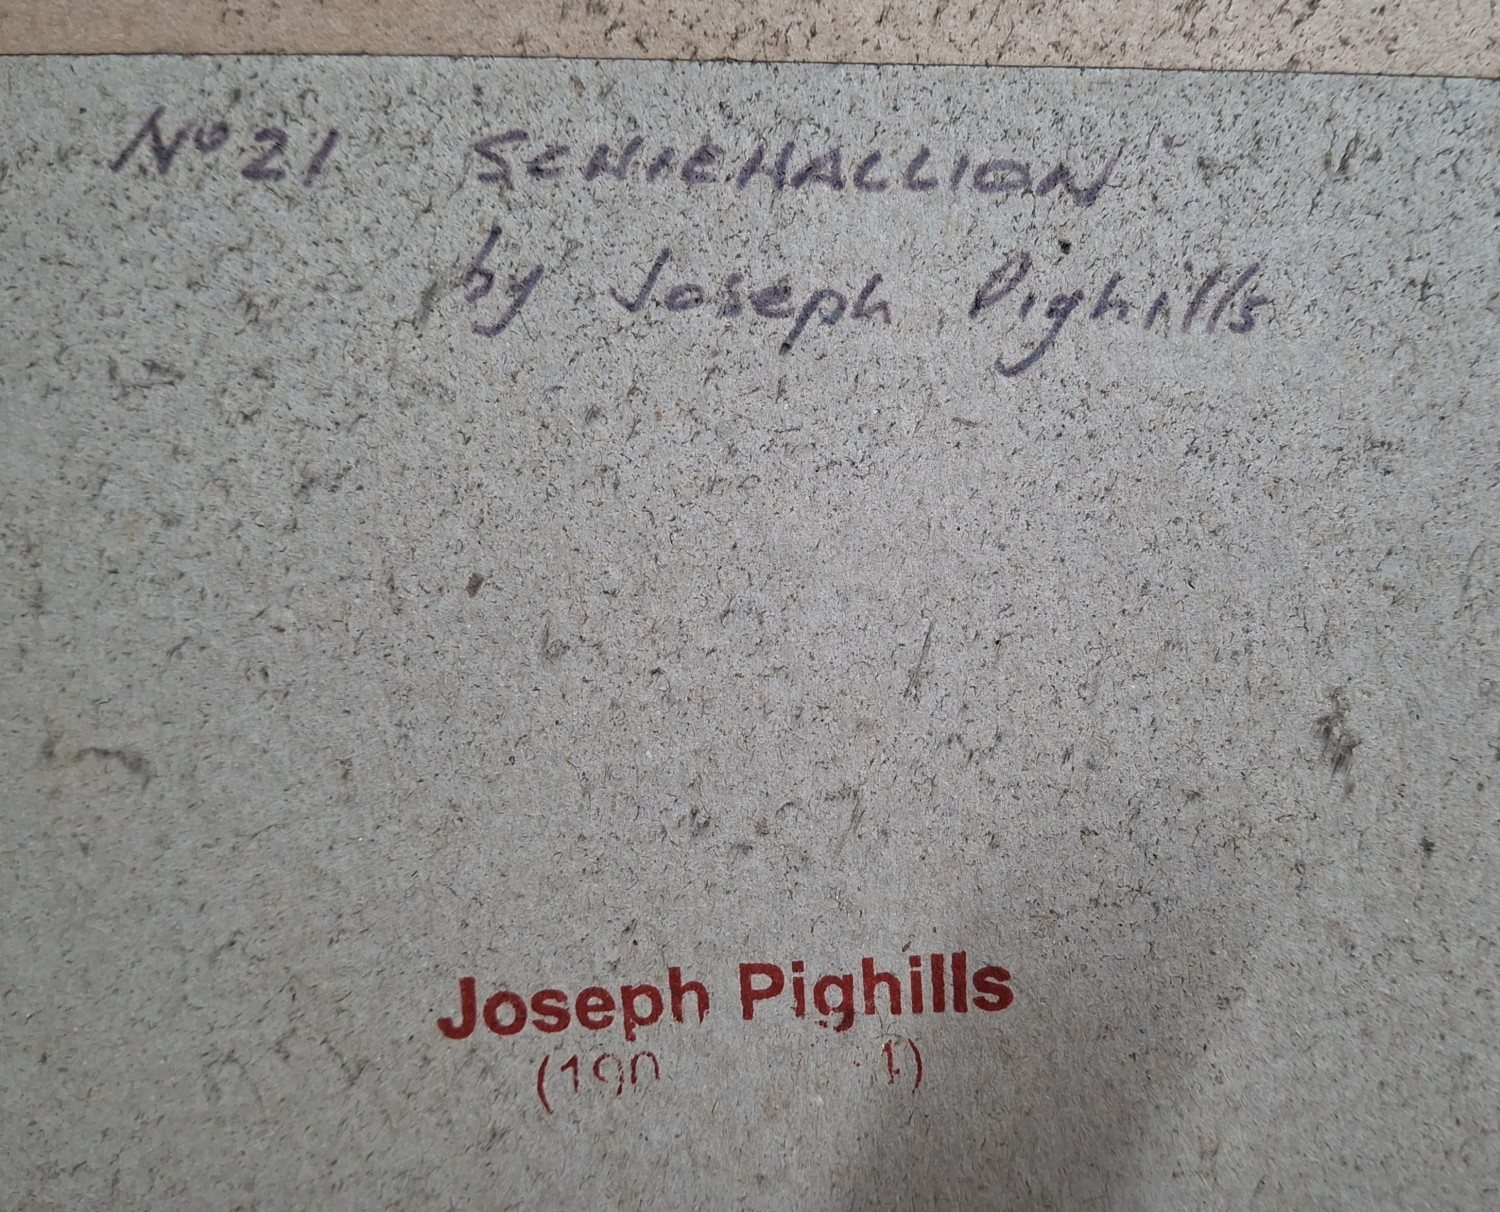 Nº 21 SCHIEHALLION
by Joseph Pighills
Joseph Pighills